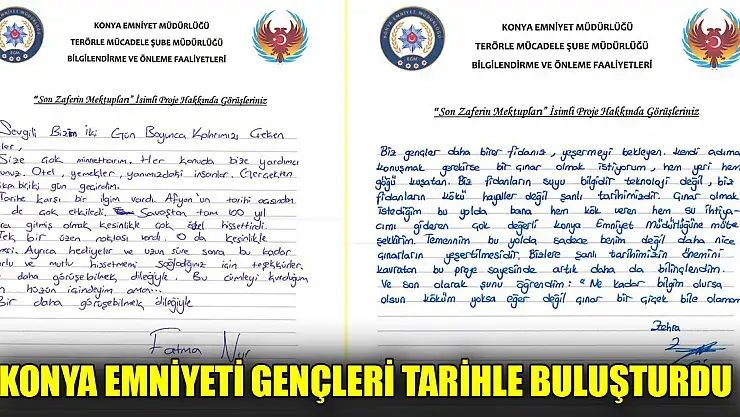 KONYA EMNİYET MÜDÜRLÜĞÜ
TERÖRLE MÜCADELE ŞUBE MÜDÜRLÜĞÜ
BİLGİLENDİRME VE ÖNLEME FAALİYETLERİ
"Son Zaferin Mektupları" İsimli Proje Hakkında Görüşleriniz
Sevgili Bizim İki Gün Boyunca Kahrımızı Çeken
ler,
Size çok minnettarım. Her konuda bize yardımcı
unuz. Otel, yemekler, yanımızdaki insanlar. Gerçekten
iki gün geçirdim.
Tarihe karşı bir ilgim vardı. Afyon'un tarihi açısından
de çok etkiledi. Savaştan tam 100 yıl
ra gitmiş olmak kesinlikle çok özel hissettirdi.
Tek bir üzen noktası vardı O da kesinlikle
Ayrıca hediyeler ve uzun süre sonra bu kadar
ve mutlu hissetmemi sağladığınız için teşekkürler.
daha görüşebilmek dileğiyle. Bu cümleyi kurduğum
hüzün içindeyim ama...
Bir daha görüşebilmek dileğiyle
Fatma Nur
KONYA EMNİYET MÜDÜRLÜĞÜ
TERÖRLE MÜCADELE ŞUBE MÜDÜRLÜĞÜ
BİLGİLENDİRME VE ÖNLEME FAALİYETLERİ
"Son Zaferin Mektupları" İsimli Proje Hakkında Görüşleriniz
Biz gençler daha birer fidanız, yeşermeyi bekleyen. Kendi adıma
konuşmak gerekirse bir çınar olmak istiyorum, hem yeri hem
göğü kuşatan. Biz fidanların suyu bilgidir teknoloji değil, biz
fidanların kökü hayaller değil şanlı tarihimizdir. Çınar olmak
istediğim bu yolda bana hem kök veren hem su ihtiya-
cımı gideren çok değerli Konya Emniyet Müdürlüğüne müte
şekkirim. Temennim bu yolda sadece benim değil daha nice
çınarların yeşertilmesidir. Bizlere şanlı tarihimizin önemini
kavratan bu proje sayesinde artık daha da bilinçlendim.
Ve son olarak şunu öğrendim: "Ne kadar bilgim olursa
olsun köküm yoksa eğer değil çınar bir çiçek bile olamam
Zehra
KONYA EMNİYETİ GENÇLERİ TARİHLE BULUŞTURDU